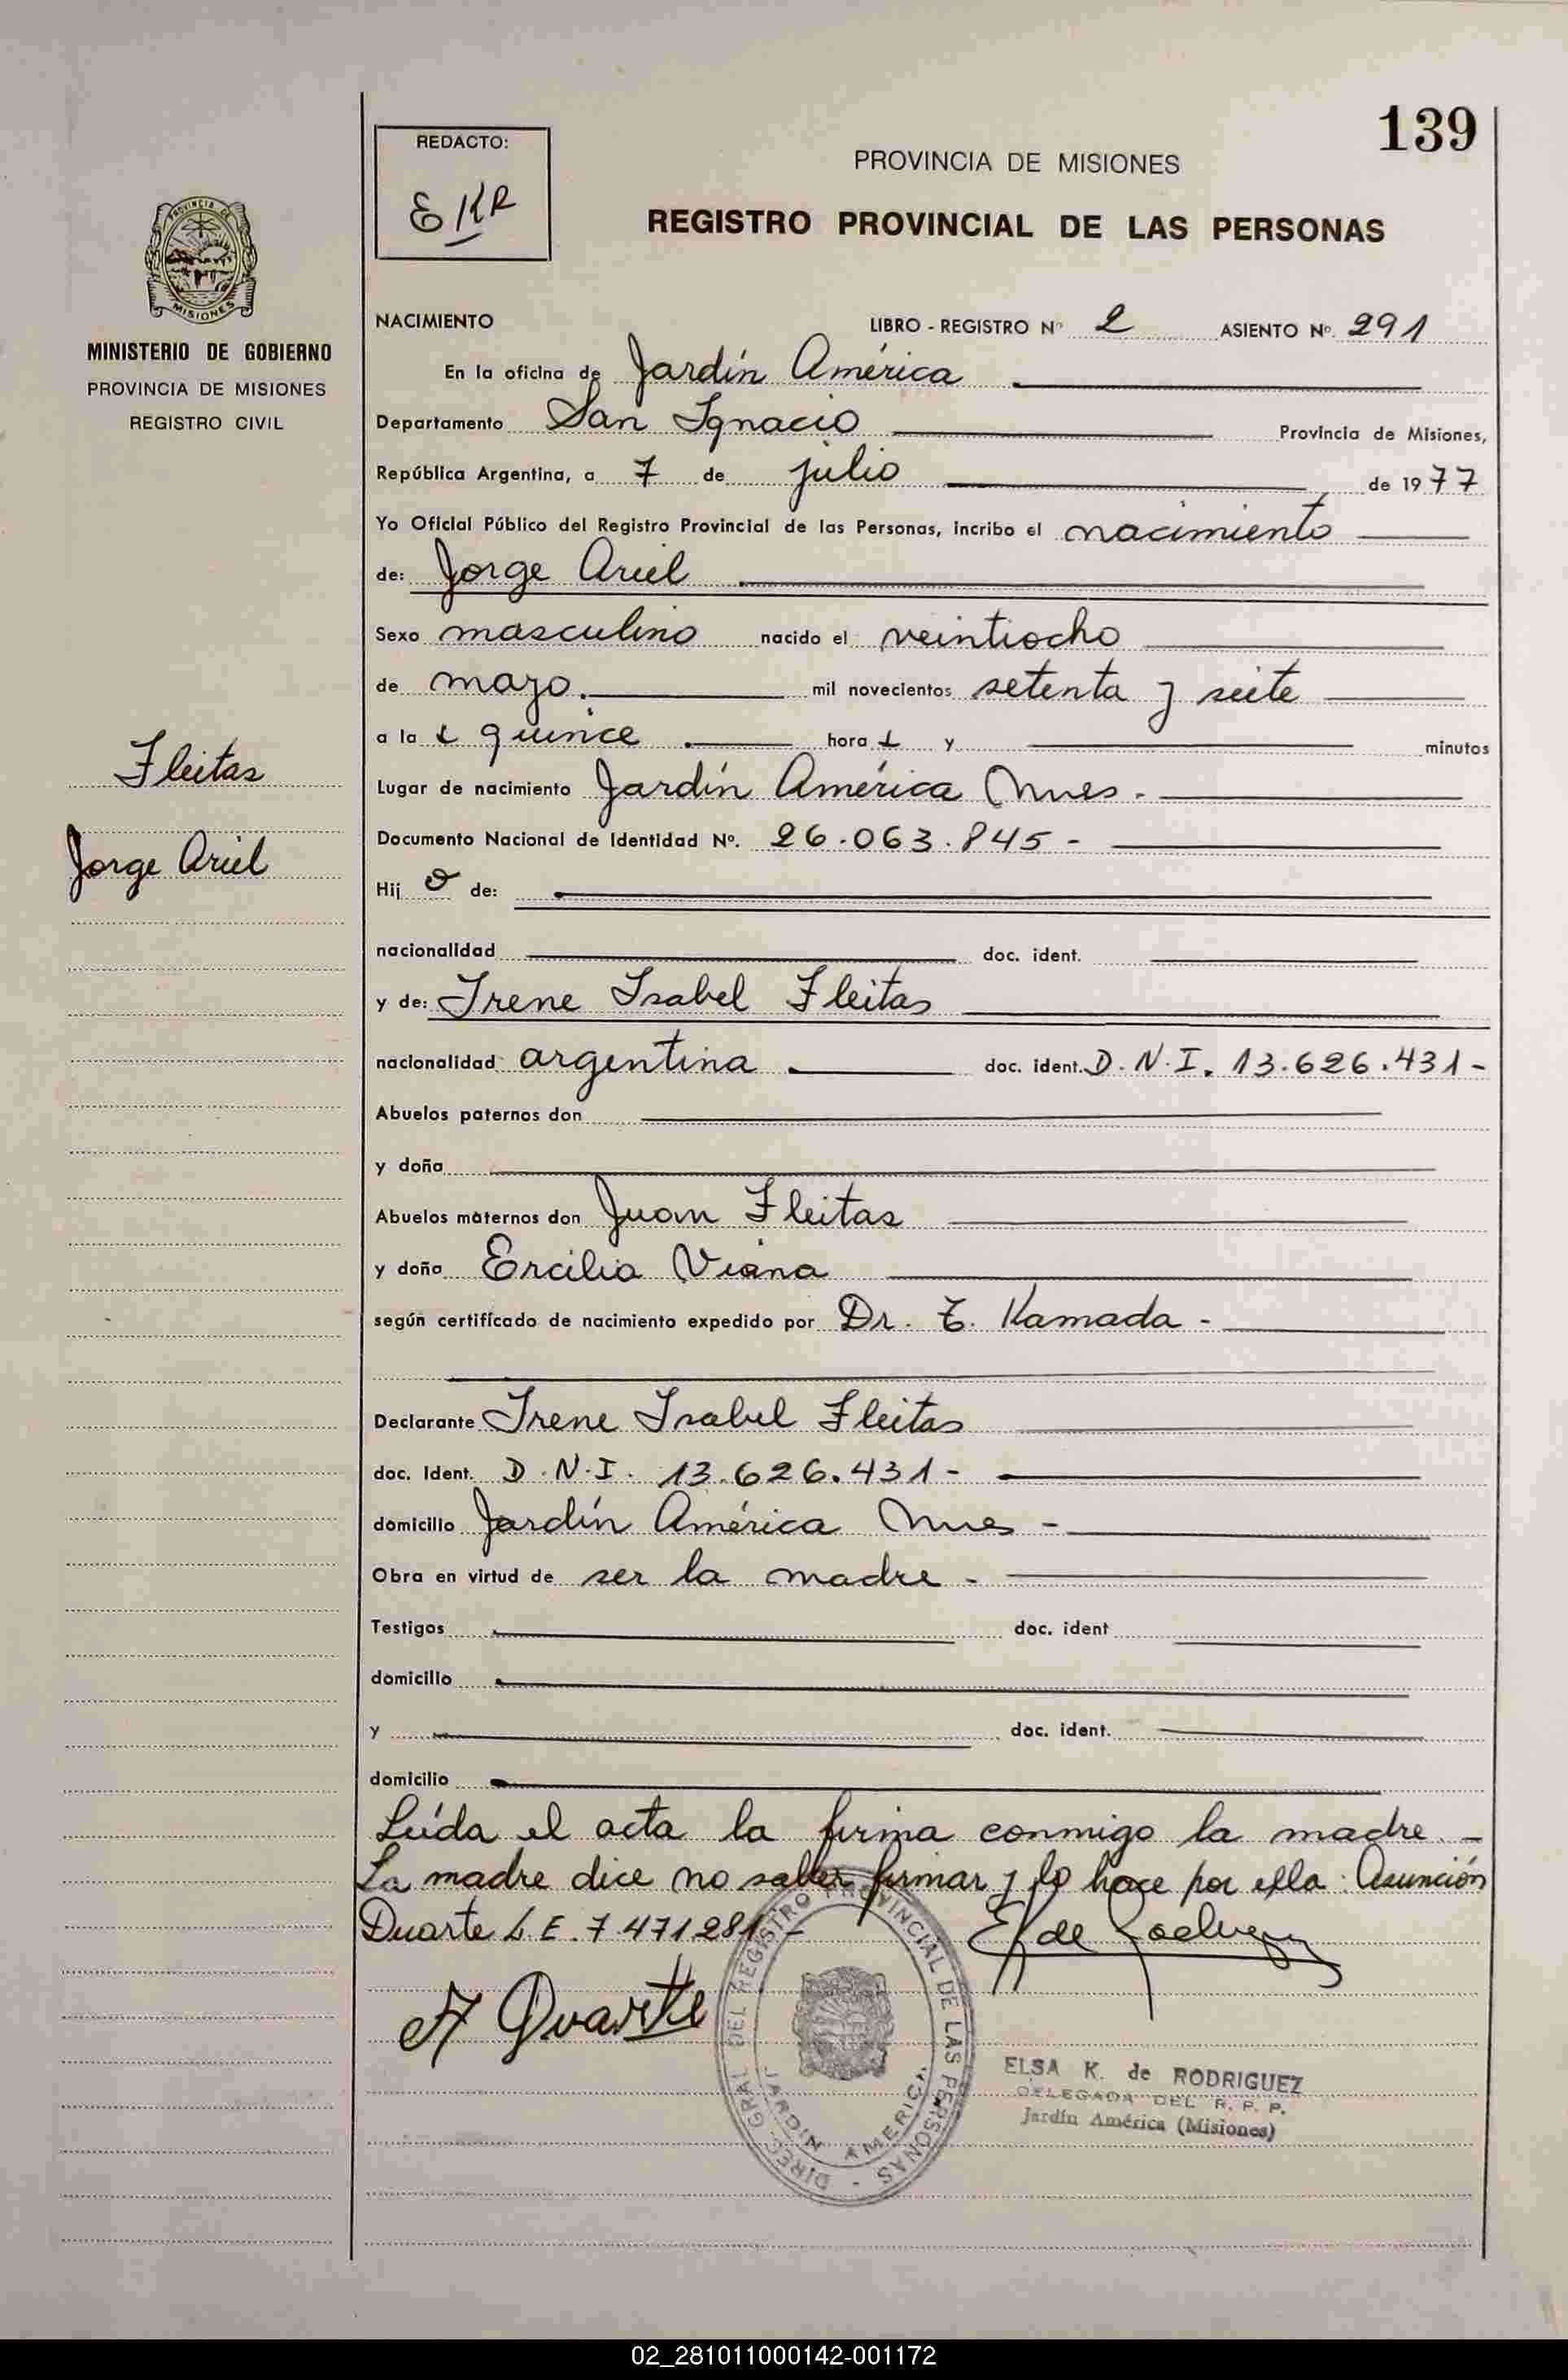 139
REDACTO:
EKR
PROVINCIA DE MISIONES
REGISTRO PROVINCIAL DE LAS PERSONAS
PROVINCIA DE
MISIONES
MINISTERIO DE GOBIERNO
PROVINCIA DE MISIONES
REGISTRO CIVIL
Fleitas
Jorge Ariel
NACIMIENTO LIBRO - REGISTRO Nº 2 ASIENTO Nº. 291
En la oficina de Jardín América
Departamento San Ignacio Provincia de Misiones,
República Argentina, a 7 de julio de 1977
Yo Oficial Público del Registro Provincial de las Personas, incribo el nacimiento
de: Jorge Ariel
Sexo masculino nacido el veintiocho
de mayo. mil novecientos setenta y siete
a la s quince hora s y minutos
Lugar de nacimiento Jardín América Mnes -
Documento Nacional de Identidad Nº. 26.063.845 -
Hij o de:
nacionalidad doc. ident.
y de: Irene Isabel Fleitas
nacionalidad argentina doc. ident. D.N.I. 13.626.431 -
Abuelos paternos don
y doña
Abuelos maternos don Juan Fleitas
y doña Ercilia Viana
según certificado de nacimiento expedido por Dr. T. Kamada -
Declarante Irene Isabel Fleitas
doc. Ident. D.N.I. 13.626.431 -
domicilio Jardín América Mnes -
Obra en virtud de ser la madre -
Testigos doc. ident
domicilio
y doc. ident.
domicilio
Leída el acta la firma conmigo la madre. -
La madre dice no saber firmar y lo hace por ella: Asunción
Duarte L.E. 7.471.281 -
A Duarte
DIREC. GRAL DEL REGISTRO PROVINCIAL DE LAS PERSONAS -
JARDIN AMERICA
ELSA K. de RODRIGUEZ
DELEGADA DEL R. P. P.
Jardín América (Misiones)
02_281011000142-001172